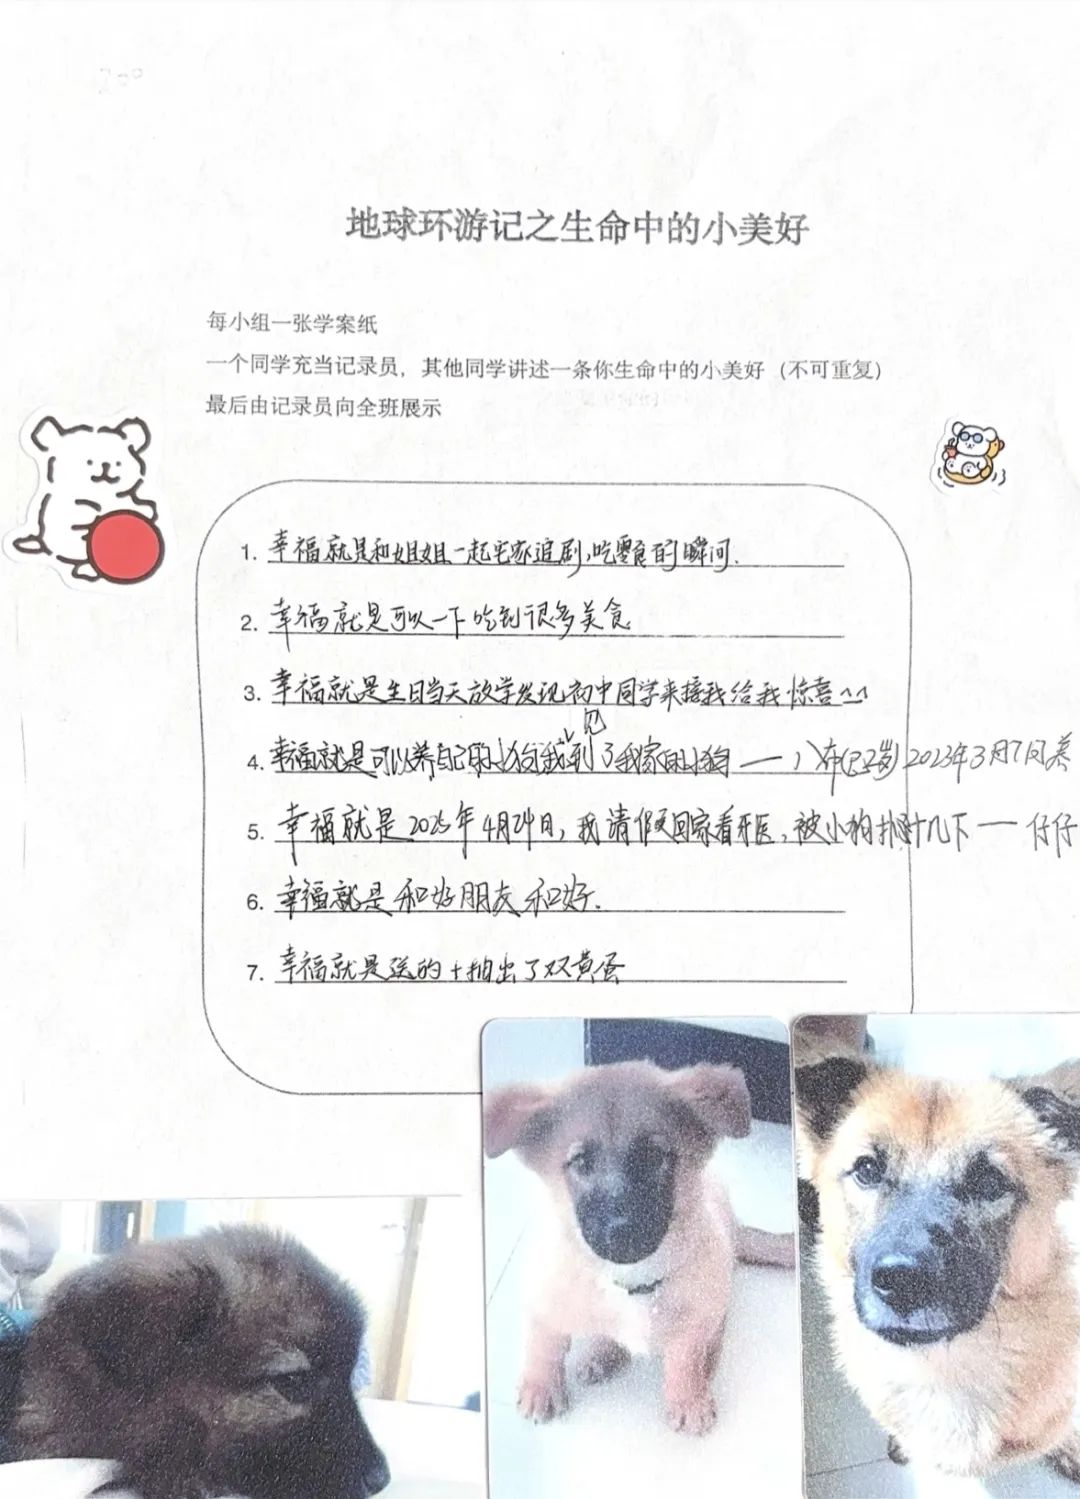 地球环游记之生命中的小美好
每小组一张学案纸
一个同学充当记录员，其他同学讲述一条你生命中的小美好（不可重复）
最后由记录员向全班展示
1. 幸福就是和姐姐一起宅家追剧,吃零食的瞬间.
2. 幸福就是可以一下吃到很多美食
3. 幸福就是生日当天放学发现初中同学来接我给我惊喜^^
4. 幸福就是可以养自己的小狗我见到了我家的小狗 —— 布(2岁) 2023年3月7日养
5. 幸福就是2025年4月24日, 我请假回家看牙医, 被小狗扑倒几下 — 仔仔
6. 幸福就是和好朋友和好.
7. 幸福就是送的+抽出了双黄蛋